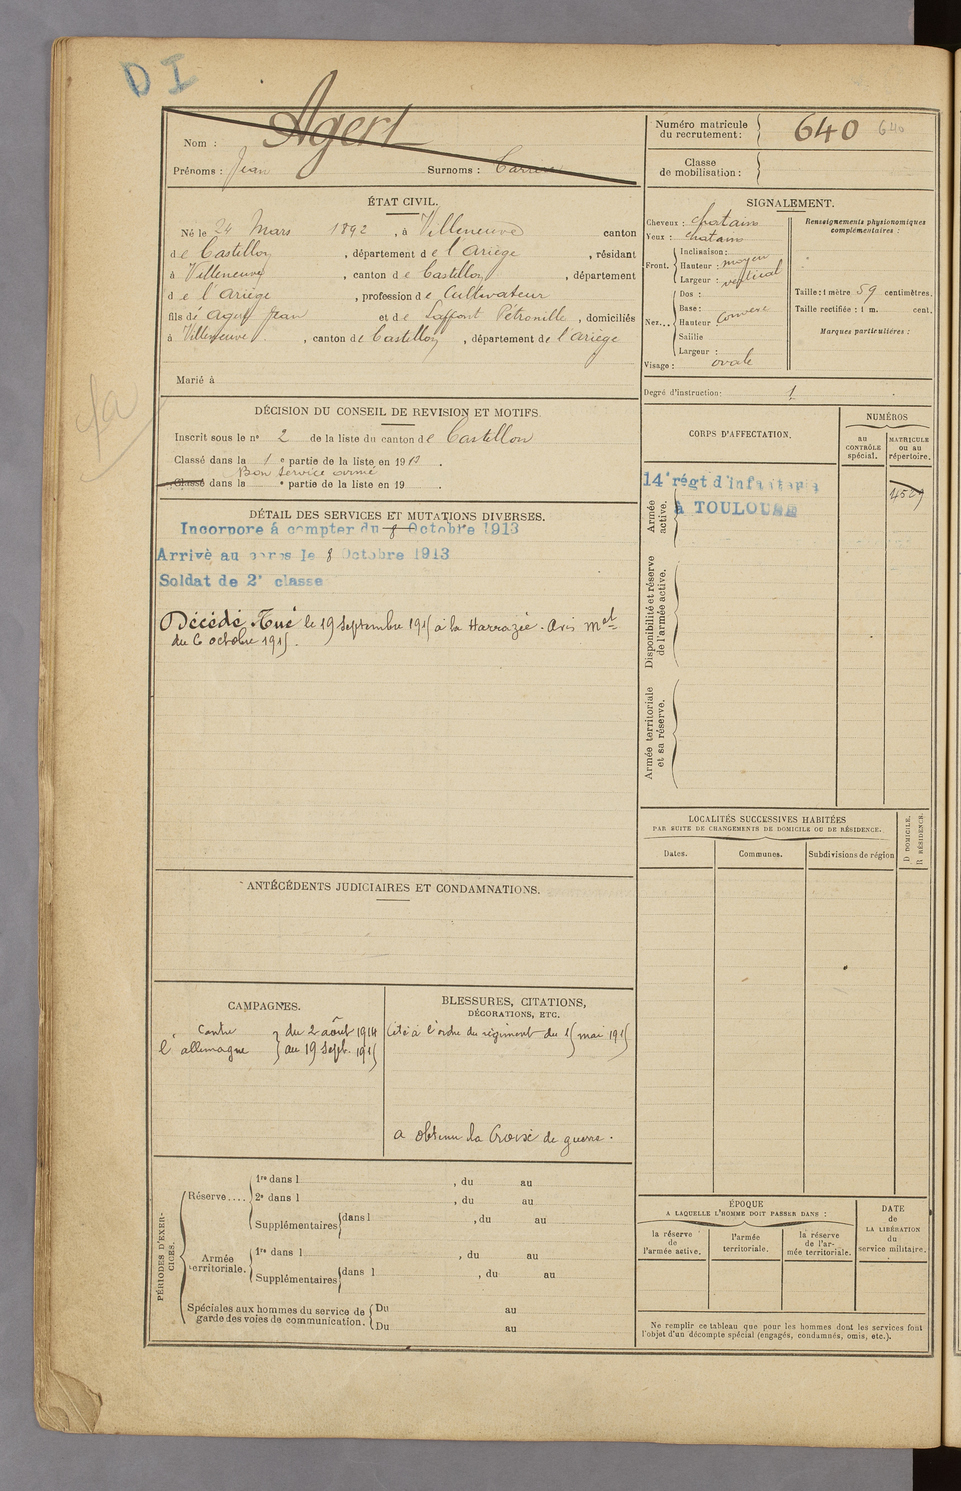 D I
Nom : Agert
Prénoms : Jean Surnoms :
Numéro matricule du recrutement: 640 640
Classe de mobilisation :
ÉTAT CIVIL.
Né le 24 Mars 1892 , à Villeneuve canton
de Castillon , département de l'Ariège , résidant
à Villeneuve , canton de Castillon , département
de l'Ariège , profession de Cultivateur
fils de Agert Jean et de Laffont Pétronille , domiciliés
à Villeneuve , canton de Castillon , département de l'Ariège
Marié à
SIGNALEMENT.
Cheveux : chatain
Yeux : chatains
Front. Inclinaison :
Hauteur : moyen
Largeur : vertical
Nez... Dos :
Base :
Hauteur Convexe
Saillie
Largeur :
Visage : ovale
Renseignements physionomiques complémentaires :
Taille : 1 mètre 59 centimètres.
Taille rectifiée : 1 m. cent.
Marques particulières :
Degré d'instruction: 1
DÉCISION DU CONSEIL DE REVISION ET MOTIFS.
Inscrit sous le nº 2 de la liste du canton de Castillon
Classé dans la 1 e partie de la liste en 1913 .
Bon service armé
Classé dans la e partie de la liste en 19 .
DÉTAIL DES SERVICES ET MUTATIONS DIVERSES.
Incorporé à compter du 8 Octobre 1913
Arrivé au corps le 8 Octobre 1913
Soldat de 2e classe
Décédé. Tué le 19 Septembre 1915 à la Harrazée. Avis Mel
du 6 octobre 1915.
CORPS D'AFFECTATION.
NUMÉROS
au CONTRÔLE spécial.
MATRICULE ou au répertoire.
14e régt d'infanterie
à TOULOUSE
Armée active.
Disponibilité et réserve de l'armée active.
Armée territoriale et sa réserve.
LOCALITÉS SUCCESSIVES HABITÉES
PAR SUITE DE CHANGEMENTS DE DOMICILE OU DE RÉSIDENCE.
Dates. Communes. Subdivisions de région
D DOMICILE.
R RÉSIDENCE.
ANTÉCÉDENTS JUDICIAIRES ET CONDAMNATIONS.
CAMPAGNES.
Contre du 2 août 1914
l'allemagne au 19 Sept. 1915
BLESSURES, CITATIONS,
DÉCORATIONS, ETC.
Cité à l'ordre du régiment du 15 mai 1915
a obtenu la Croix de guerre.
PÉRIODES D'EXERCICES.
Réserve.... 1re dans l , du au
2e dans l , du au
Supplémentaires dans l , du au
Armée territoriale. 1re dans l , du au
Supplémentaires dans l , du au
Spéciales aux hommes du service de garde des voies de communication. Du au
Du au
ÉPOQUE
A LAQUELLE L'HOMME DOIT PASSER DANS :
la réserve de l'armée active.
l'armée territoriale.
la réserve de l'armée territoriale.
DATE de LA LIBÉRATION du service militaire.
Ne remplir ce tableau que pour les hommes dont les services font
l'objet d'un décompte spécial (engagés, condamnés, omis, etc.).